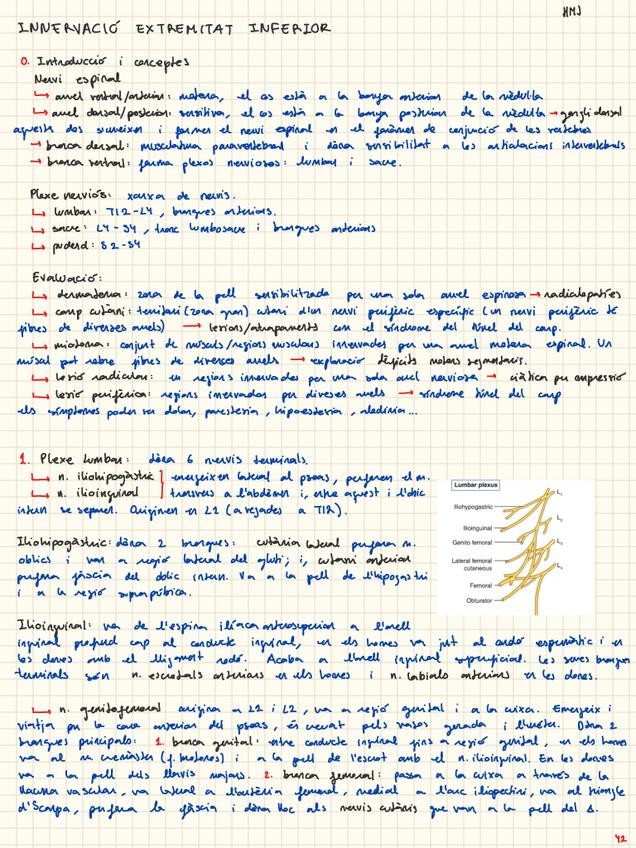 HMJ
INNERVACIÓ EXTREMITAT INFERIOR
0. Introducció i conceptes
Nervi espinal
↳ arrel ventral/anterior: motora, el cos està a la banya anterior de la mèdul·la
↳ arrel dorsal/posterior: sensitiva, el cos està a la banya posterior de la mèdul·la → gangli dorsal
aquests dos s'uneixen i formen el nervi espinal en el foràmen de conjunció de les vertebres
→ branca dorsal: musculatura paravertebral i dóna sensibilitat a les articulacions intervertebrals
→ branca ventral: forma plexos nerviosos: lumbar i sacre.
Plexe nerviós: xarxa de nervis.
↳ lumbar: T12-L4, branques anteriors.
↳ sacre: L4-S4, tronc lumbosacre i branques anteriors
↳ pudend: S2-S4
Evaluació:
↳ dermatoma: zona de la pell sensibilitzada per una sola arrel espinosa → radiculopaties
↳ camp cutàni: territori (zona gran) cutani d'un nervi perifèric específic (un nervi perifèric té
fibres de diverses arrels) → lesions/atrapaments com el síndrome del túnel del carp.
↳ miotoma: conjunt de músculs/regions musculars innervades per una arrel motora espinal. Un
múscul pot rebre fibres de diverses arrels → exploració dèficits motors segmentaris.
↳ lesió radicular: en regions innervades per una sola arrel nerviosa → ciàtica per compressió
↳ lesió perifèrica: regions innervades per diverses arrels → síndrome túnel del carp
els símptomes poden ser dolor, parestèsia, hipoestèsia, al·lodínia...
1. Plexe lumbar: dóna 6 nervis terminals.
↳ n. iliohipogàstric } emergeixen lateral al psoas, perforen el m.
↳ n. ilioinguinal } transvers a l'abdòmen i, entre aquest i l'oblic
intern se separen. Originen en L1 (a vegades a T12).
Lumbar plexus
Iliohypogastric
Ilioinguinal
Genito femoral
Lateral femoral
cutaneous
Femoral
Obturator
L1
L2
L3
L4
Iliohipogàstric: dóna 2 branques: cutània lateral perfora m.
oblics i van a regió lateral del gluti; i, cutani anterior
perfora fàscia del oblic intern. Va a la pell de l'hipogastri
i a la regió suprapúbica.
Ilioinguinal: va de l'espina ilíaca anterosuperior a l'anell
inguinal profund cap al conducte inguinal, en els homes va junt al cordó espermàtic i en
les dones amb el lligament rodó. Acaba a l'anell inguinal superficial. Les seves branques
terminals són n. escrotals anteriors en els homes i n. labials anteriors en les dones.
↳ n. genitofemoral origina a L1 i L2, va a regió genital i a la cuixa. Emergeix i
viatja per la cara anterior del psoas, és creuat pels vasos gonada i l'urèter. Dóna 2
branques principals: 1. branca genital: entre conducte inguinal fins a regió genital, en els homes
va al m cremàster (f. motores) i a la pell de l'escrot amb el n. ilioinguinal. En les dones
va a la pell dels llavis majors. 2. branca femoral: passa a la cuixa a través de la
llacuna vascular, va lateral a l'artèria femoral, medial a l'arc iliopectini, va al triangle
d'Scarpa, perfora la fàscia i dóna lloc als nervis cutànis que van a la pell del Δ.
42